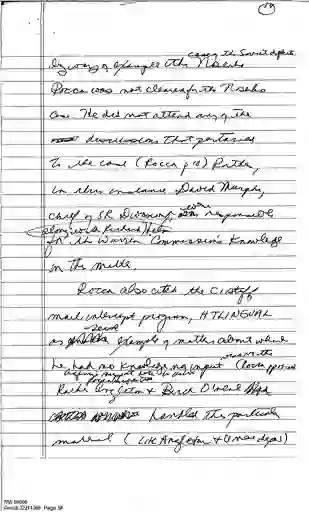 case of the Soviet defector
by way of example the Nosenko
Rocca was not cleared for the Nosenko
case. He did not attend any of the
discussions that pertained
to the case (Rocca p 18) Rather,
in this instance David Murphy,
chief of SR Division, were responsible
along with Richard Helms
for the Warren Commission's knowledge
in the matter.
Rocca also cited the CI staff
mail intercept program, HTLINGUAL
as example of matter about which
he had no knowledge nor input (Rocca
Rather Angleton & Birch O'Neal
handled this particular
material (cite Angleton &
NW 88608
Page 58